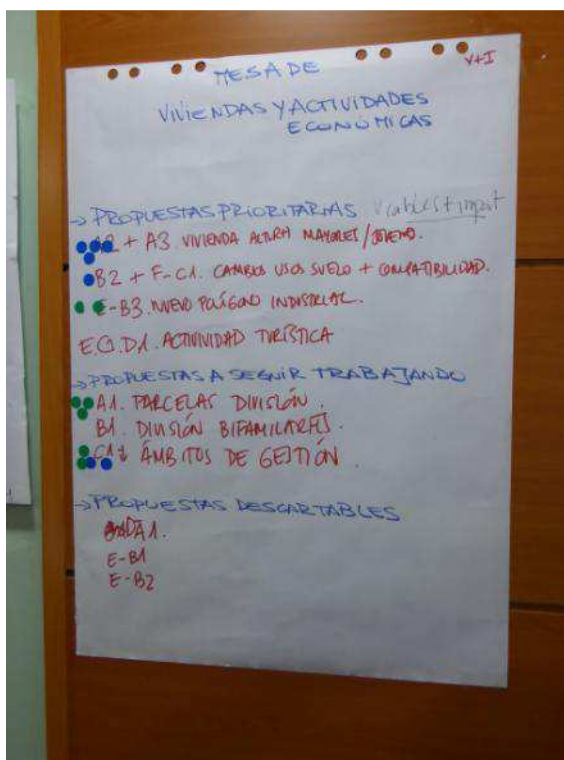 MESA DE
V+I
VIVIENDAS Y ACTIVIDADES
ECONÓMICAS
→ PROPUESTAS PRIORITARIAS Viables + impact
A2 + A3. VIVIENDA ALTURA MAYORES/JÓVENES.
B2 + F-C1. CAMBIOS USOS SUELO + COMPATIBILIDAD.
E-B3. NUEVO POLÍGONO INDUSTRIAL.
D1. ACTIVIDAD TURÍSTICA
→ PROPUESTAS A SEGUIR TRABAJANDO
A1. PARCELAS DIVISIÓN.
B1. DIVISIÓN BIFAMILIARES.
C1 ÁMBITOS DE GESTIÓN.
→ PROPUESTAS DESCARTABLES
A1.
E-B1
E-B2